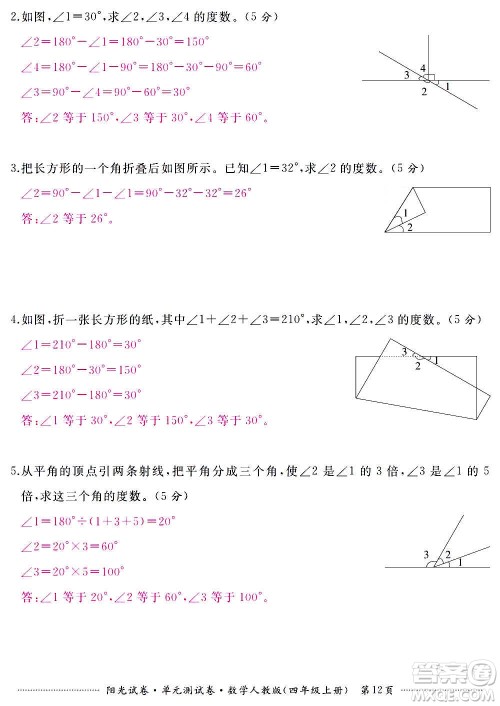 2.如图,∠1=30°,求∠2,∠3,∠4的度数。(5分)
∠2=180°-∠1=180°-30°=150°
∠4=180°-∠1-90°=180°-30°-90°=60°
∠3=180°-∠4-90°=180°-60°-90°=30°
答:∠2等于150°,∠3等于30°,∠4等于60°。
3 4 1
2
3.把长方形的一个角折叠后如图所示。已知∠1=32°,求∠2的度数。(5分)
∠2=90°-∠1-∠1=90°-32°-32°=26°
答:∠2等于26°。
1
2
4.如图,折一张长方形的纸,其中∠1+∠2+∠3=210°,求∠1,∠2,∠3的度数。(5分)
∠1=210°-180°=30°
∠2=180°-30°=150°
∠3=210°-180°=30°
答:∠1等于30°,∠2等于150°,∠3等于30°。
3 1
2
5.从平角的顶点引两条射线,把平角分成三个角,使∠2是∠1的3倍,∠3是∠1的5
倍,求这三个角的度数。(5分)
∠1=180°÷(1+3+5)=20°
∠2=20°×3=60°
∠3=20°×5=100°
答:∠1等于20°,∠2等于60°,∠3等于100°。
3 2
1
阳光试卷·单元测试卷·数学人教版(四年级上册) 第12页